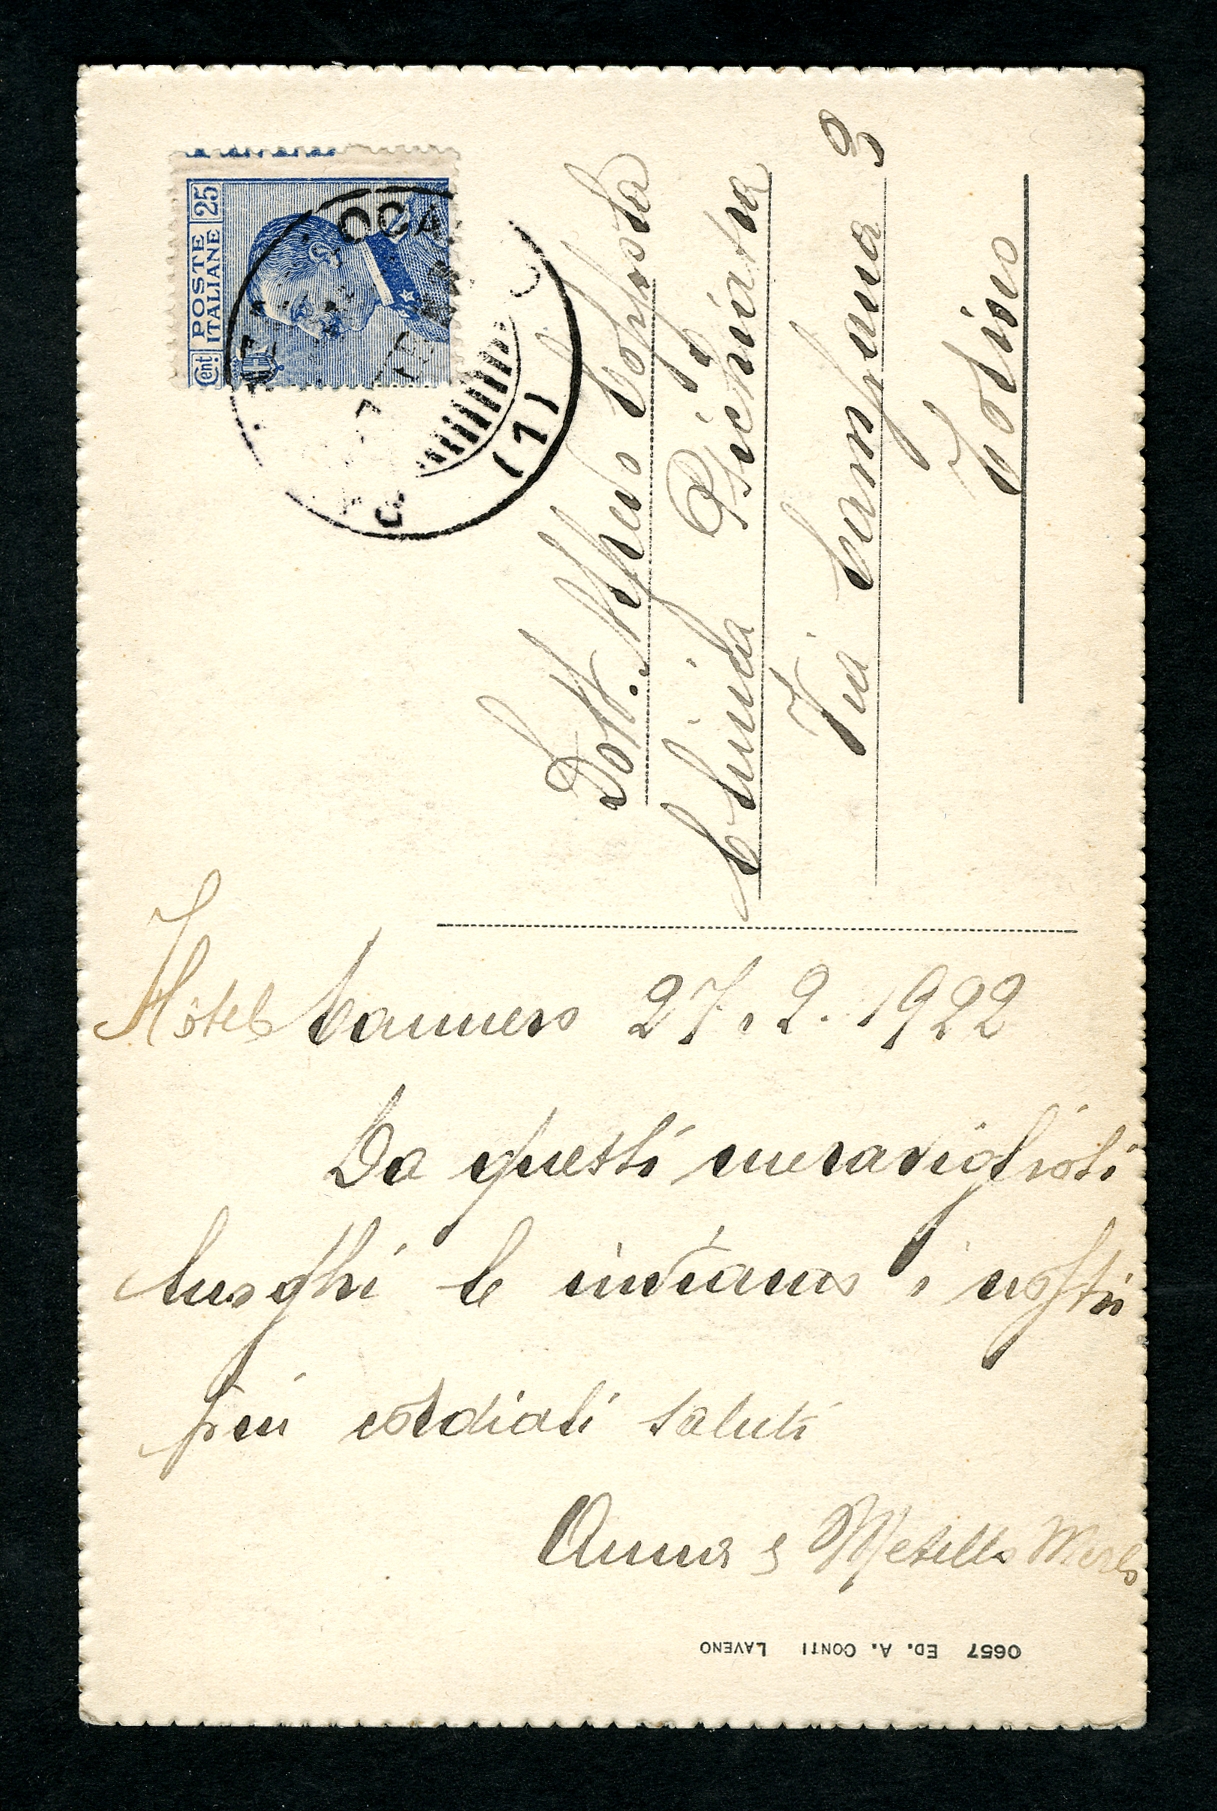 POSTE
ITALIANE
Cent 25
OCA
(1)
Dott.
Clinica Psichiatra
Via Campana 3
Torino
Hôtel Cannero 27.2.1922
Da questi meravigliosi
luoghi Le inviano i nostri
più cordiali saluti
Anna e Metello Merlo
0657 ED. A. CONTI LAVENO